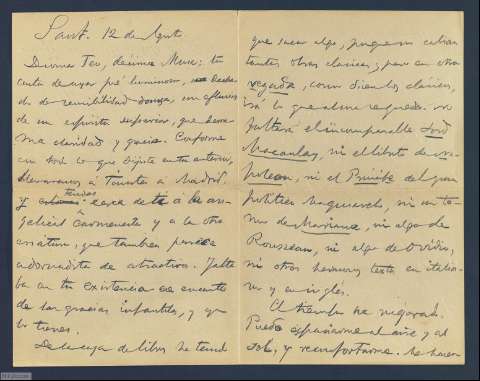 Sant. 12 de Agto
Divina Teo, décima Musa: tu
carta de ayer fué luminosa,
de sensibilidad efluvios
de un espíritu superior, que derra-
ma claridad y gracia. Conforme
con todo lo que dijiste en tu anterior,
llevaremos á á Madrid.
Y cerca de tí á la an-
gelical y a la otra
que tambien parece
adornadita de atractivos. Falta
ba en tu existencia ese encanto
de las gracias infantiles, y ya
lo tienes.
De la caja de libros he tenid
que sacar algo, porque no cabian
tantas obras clasicas; pero en otra
vegada, como dicen los clasicos,
irá lo que ahora requeda. No
faltará el incomparable Lord
Macaulay, ni el librito de Na-
poleon, ni el Principe del gran
politico Maquiavelo, ni un to-
mo de Mariana, ni algo de
Rousseau, ni algo de Ovidio,
ni otros hermosos textos en italia-
no y en inglés.
El tiempo ha mejorado.
Puedo espaciarme al aire y al
sol, y reconfortarme. Se hacen